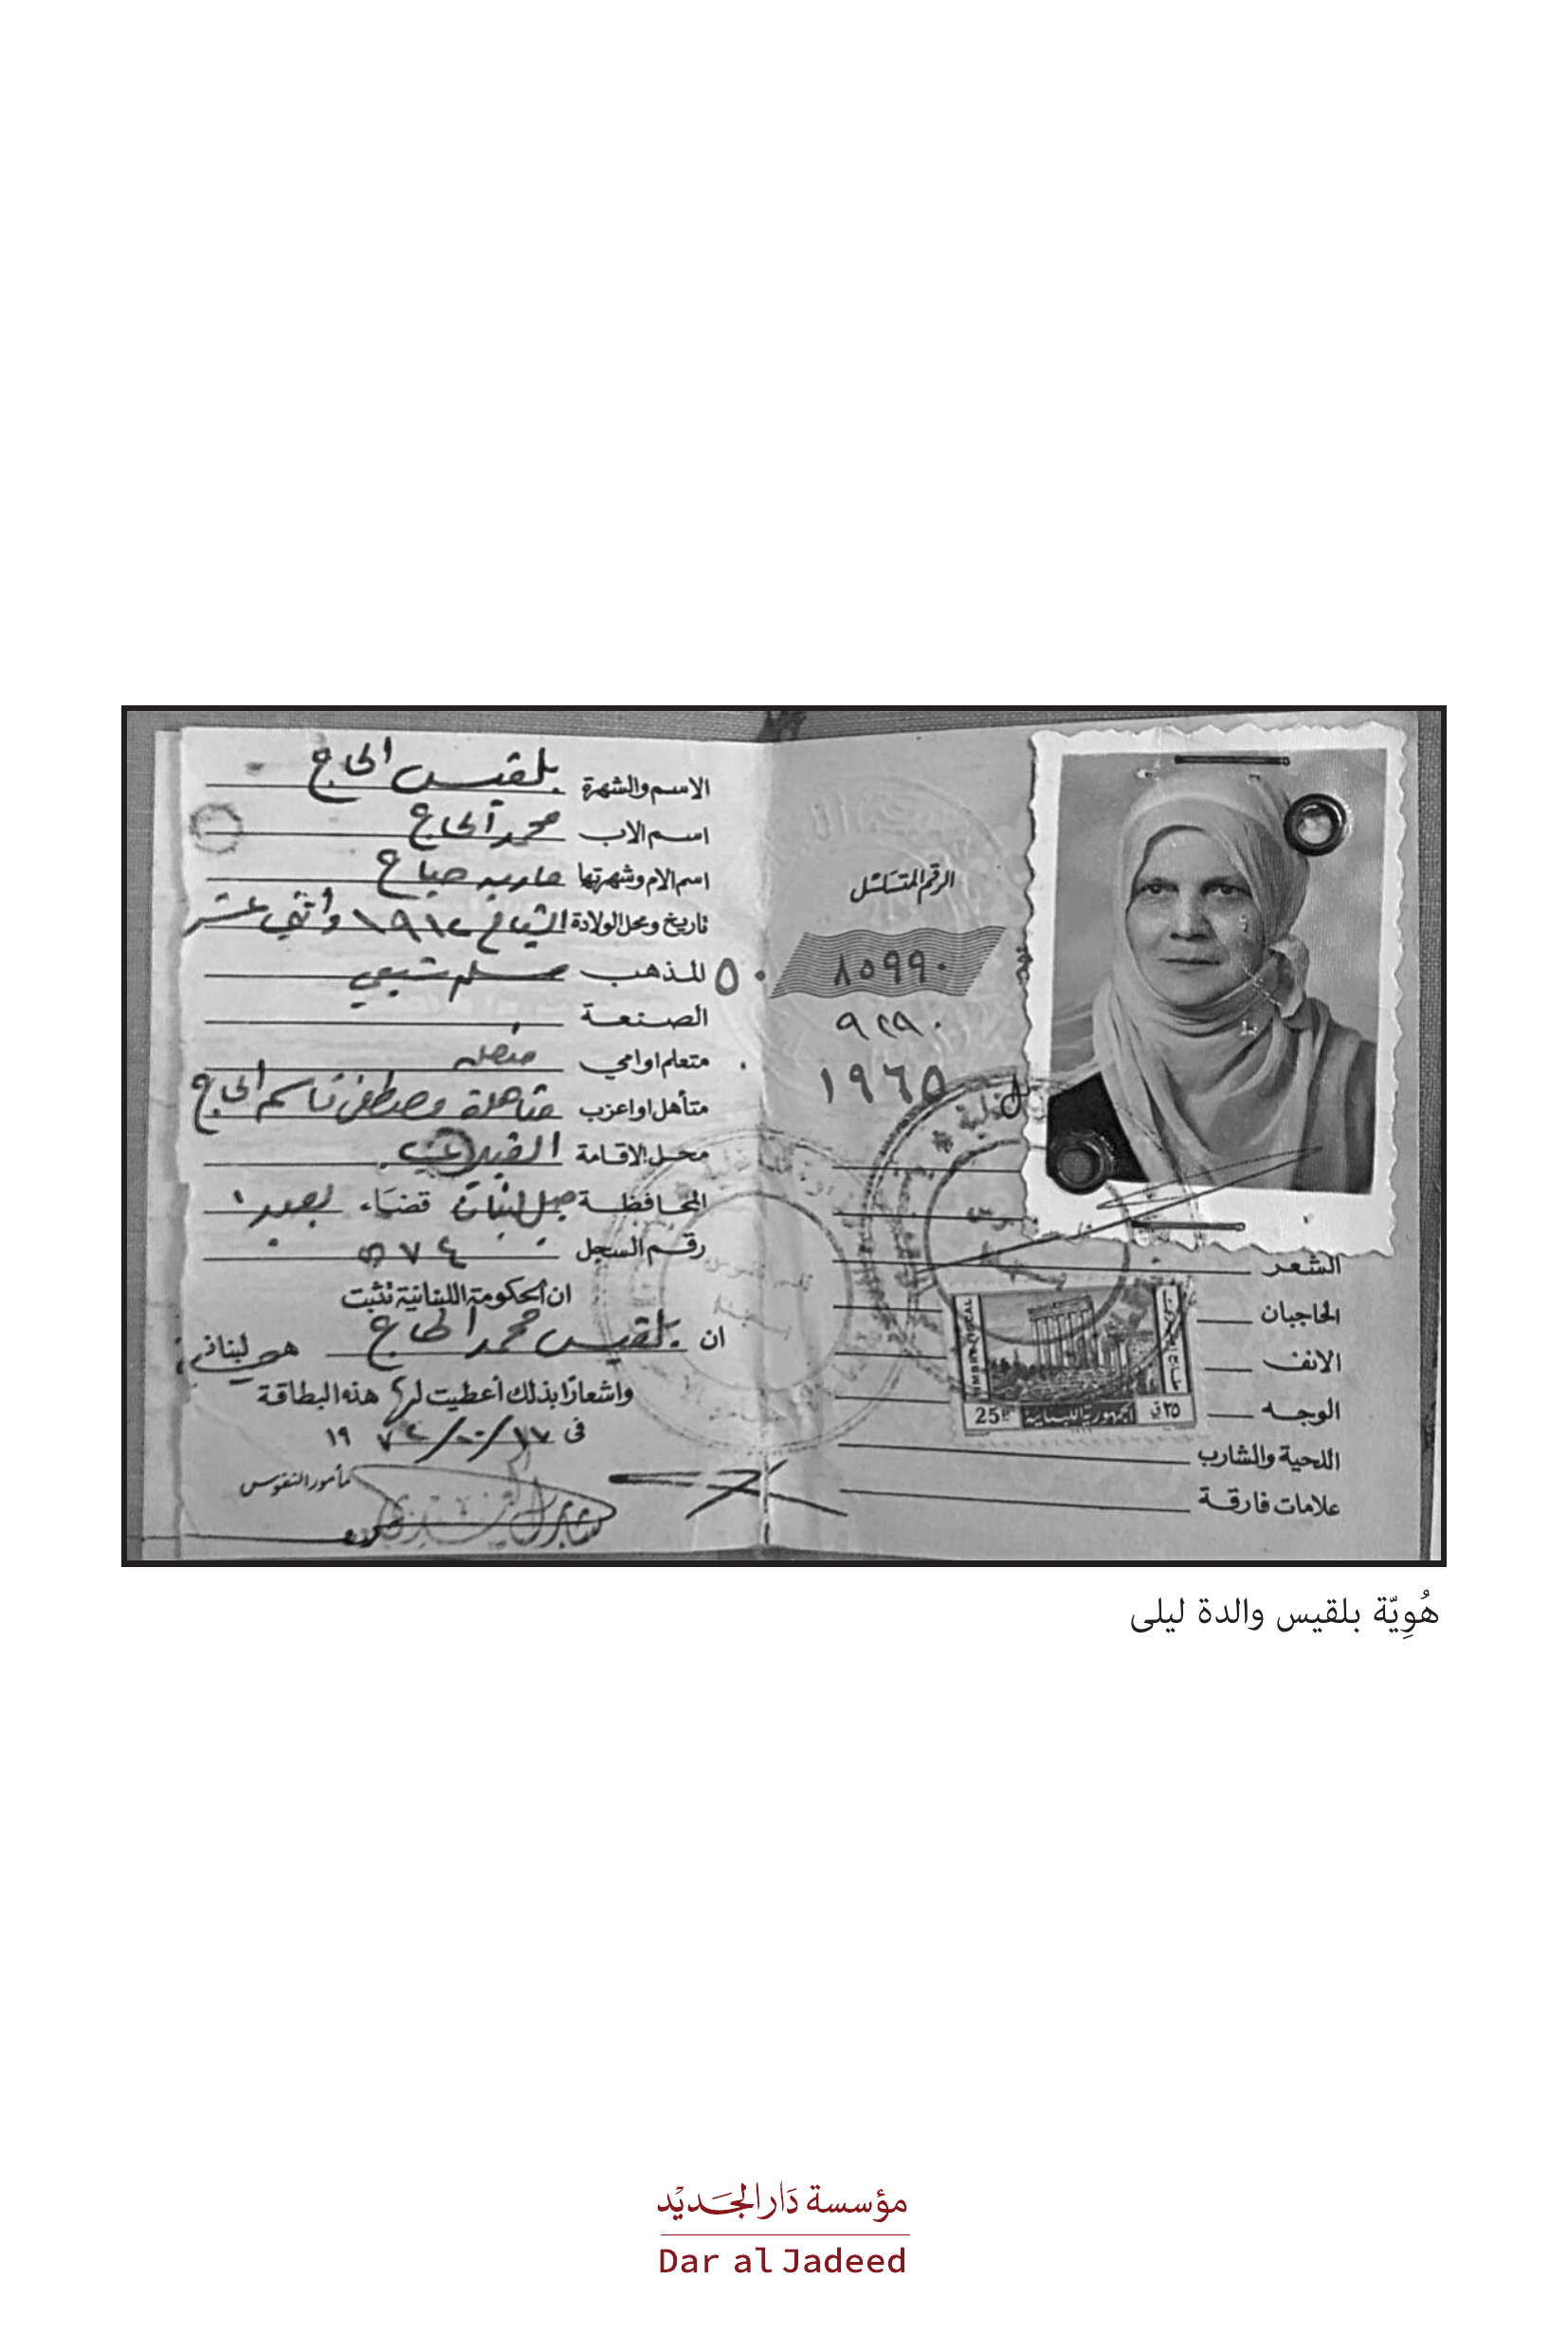 الاسم والشهرة بلقيس الحاج
اسم الاب محمد الحاج
اسم الام وشهرتها ماريه صباح
تاريخ ومحل الولادة الشياح ١٩١٢ وأثني عشر
المذهب مسلم شيعي
الصنعة
متعلم او امي
متأهل او اعزب متاهلة مصطفى قاسم الحاج
محل الاقامة
المحافظة جبل لبنان قضاء بعبدا
رقم السجل ٥٧٤
ان الحكومة اللبنانية تثبت
ان بلقيس محمد الحاج هي لبنانية
واشعارًا بذلك أعطيت لها هذه البطاقة
في ١٧ / / ١٩٧٢
مأمور النفوس
٥٠
الرقم المتسلسل
٨٥٩٩٠
٩٢٩٠
١٩٦٥
الشعر
الحاجبان
الانف
الوجه
اللحية والشارب
علامات فارقة
TIMBRE FISCAL
25 P
الجمهورية اللبنانية
٢٥ ق
هُوِيّة بلقيس والدة ليلى
مؤسسة دَار الجَديْد
Dar al Jadeed